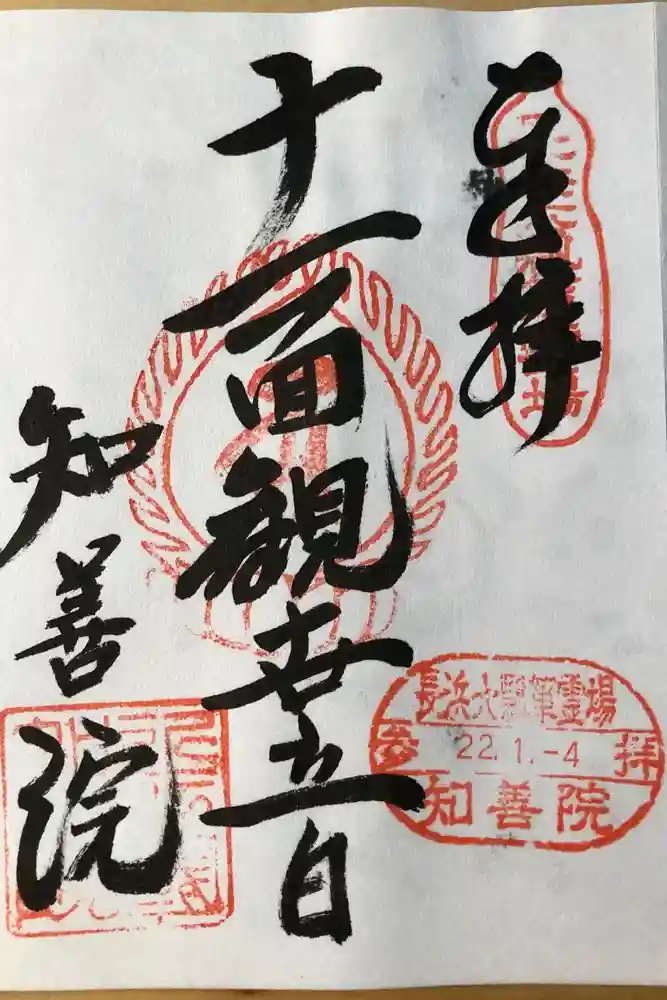 奉拝
十一面観世音
知善院
長浜大瓢箪霊場
参 22.1.-4 拝
知善院